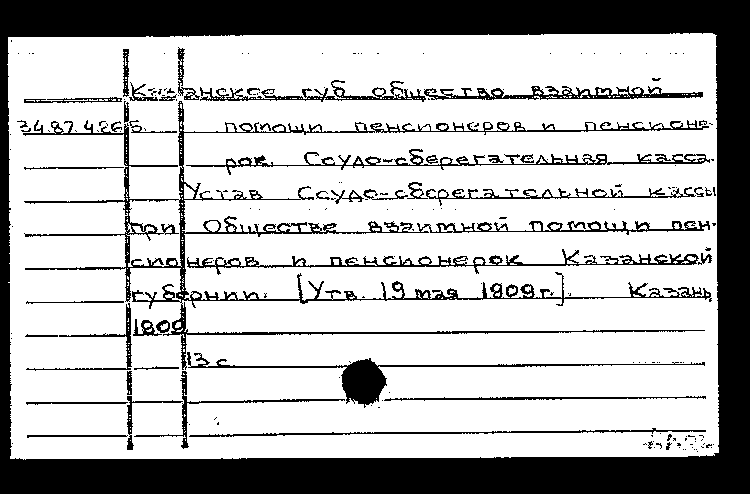 Казанское губ общество взаимной
34.87.4.265. помощи пенсионеров и пенсионе-
рок. Ссудо-сберегательная касса.
Устав Ссудо-сберегательной кассы
при Обществе взаимной помощи пен-
сионеров и пенсионерок Казанской
губернии. [Утв. 19 мая 1909 г.]. Казань,
1909
13 с.